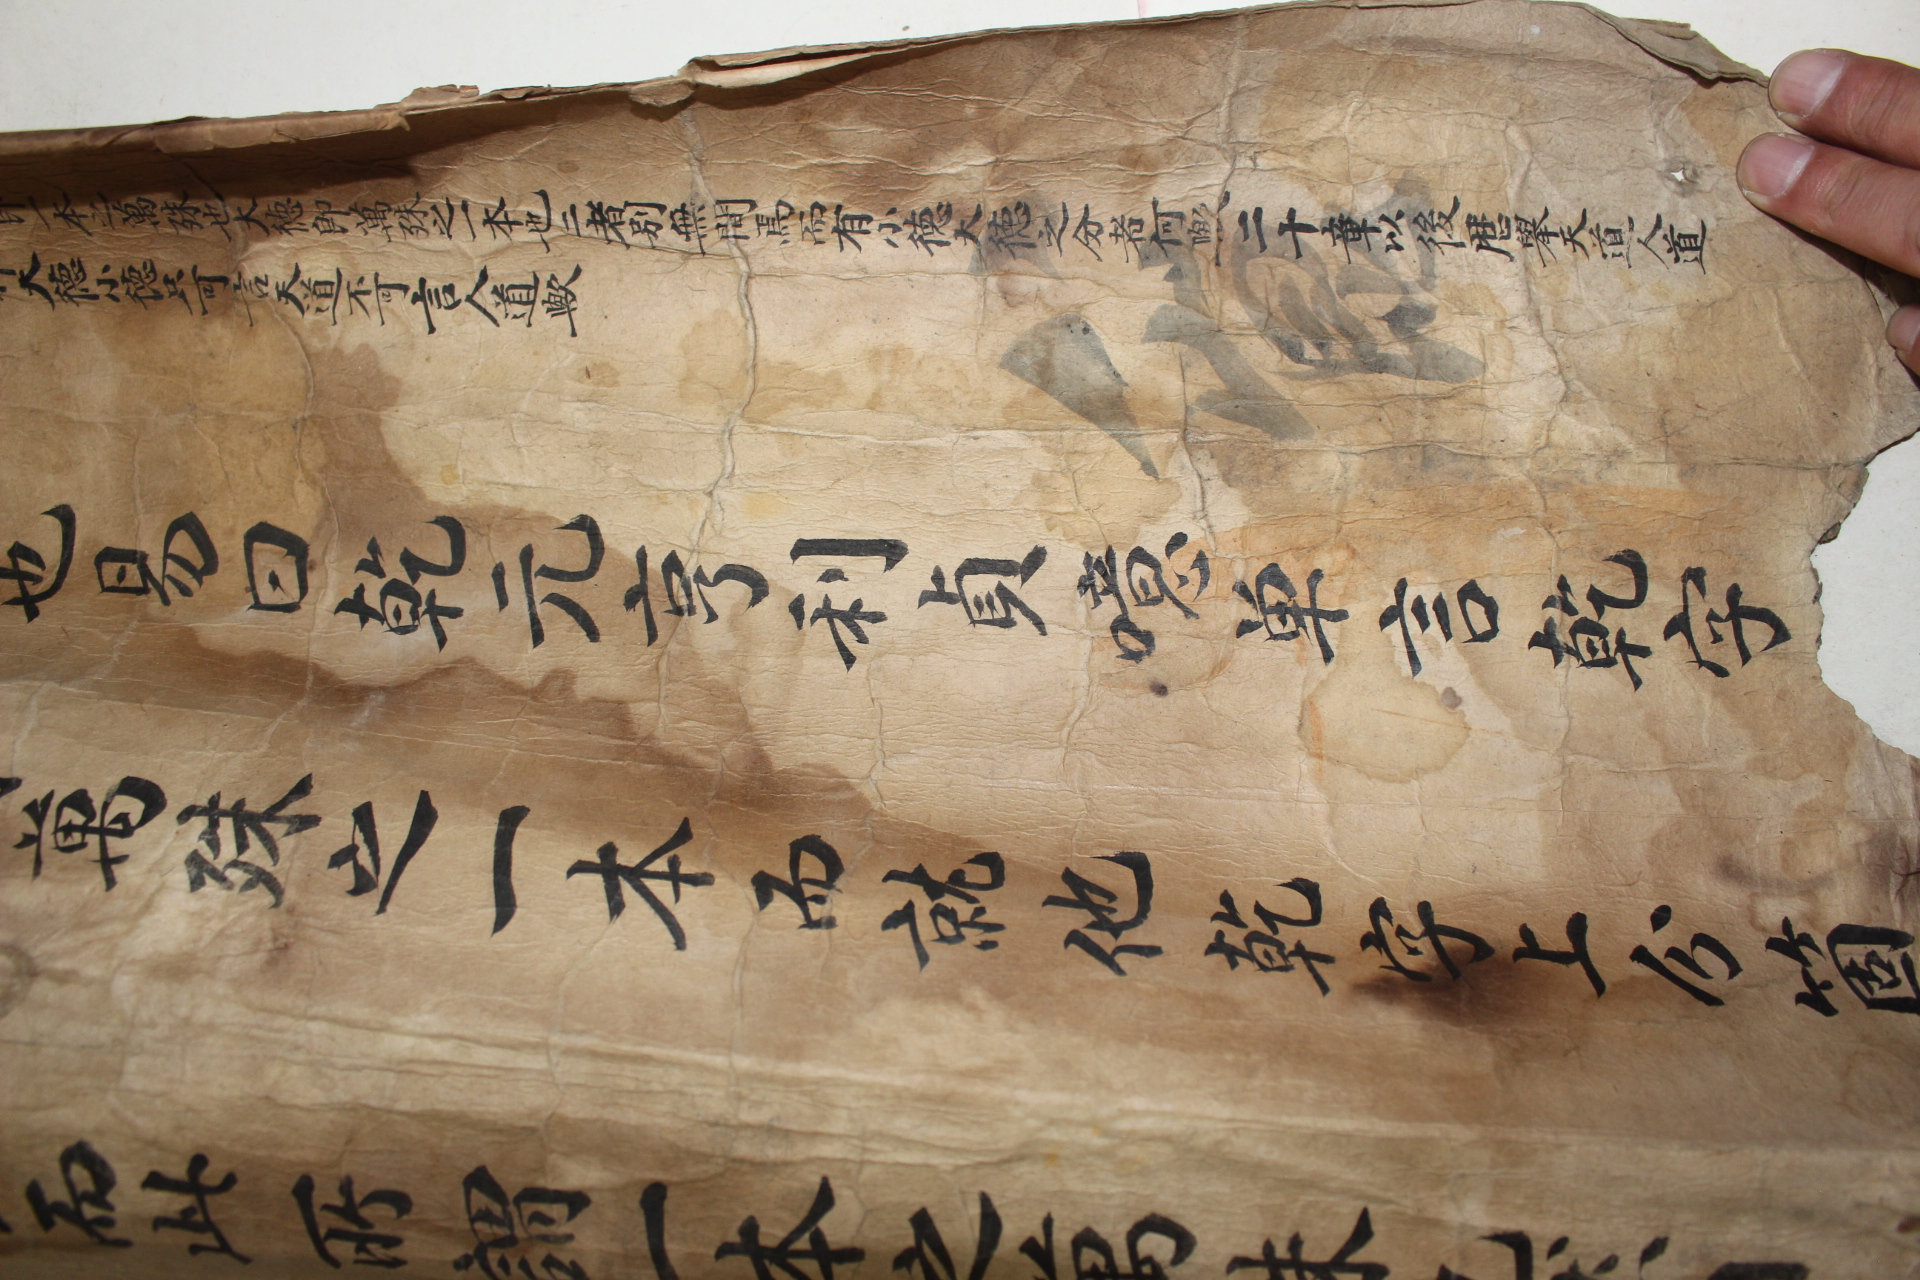 即一本之萬殊也大德即萬殊之一本也二者別無間焉而有小德大德之分者何歟二十章以後歷舉天道人道
大德小德只可言天道不可言人道歟
也易曰乾元亨利貞噫单言乾字
萬殊之一本而就他乾字上分箇
而此所謂一本之萬殊也然